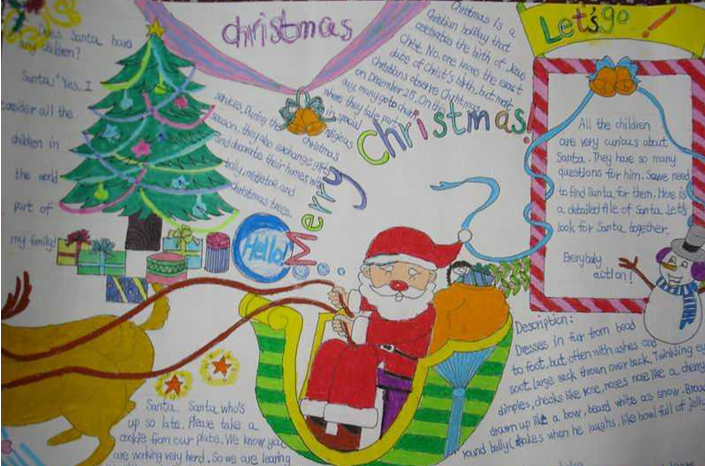 Does Santa have
any children?
Santa: "Yes. I
consider all the
children in
the world
part of
my family!
christmas
Christmas is a
Christian holiday that
celebrates the birth of Jesus
Christ. No one knows the exact
date of Christ's birth, but most
Christians observe Christmas
on December 25. On this
day, many go to church
where they take part
in special
religious
services. During the Christmas
season, they also exchange gifts
and decorate their homes with
holly, mistletoe and
christmas trees.
Merry Christmas!
Hello!
Let's go!
All the children
are very curious about
Santa. They have so many
questions for him. So we need
to find Santa for them. Here is
a detailed file of Santa. Let's
look for Santa together.
Everybady
action!
Description:
Dresses in fur from head
to foot, but often with ashes and
soot. Large sack thrown over back. Twinkling ey
dimples, cheeks like rose, nose like a cherry
drawn up like a bow, beard white as snow. Broad
round belly shakes when he laughs, like bowl full of jelly
Santa Santa who's
up so late. Please take a
cookie from our plate. We know you
are working very hard. So we are leaving